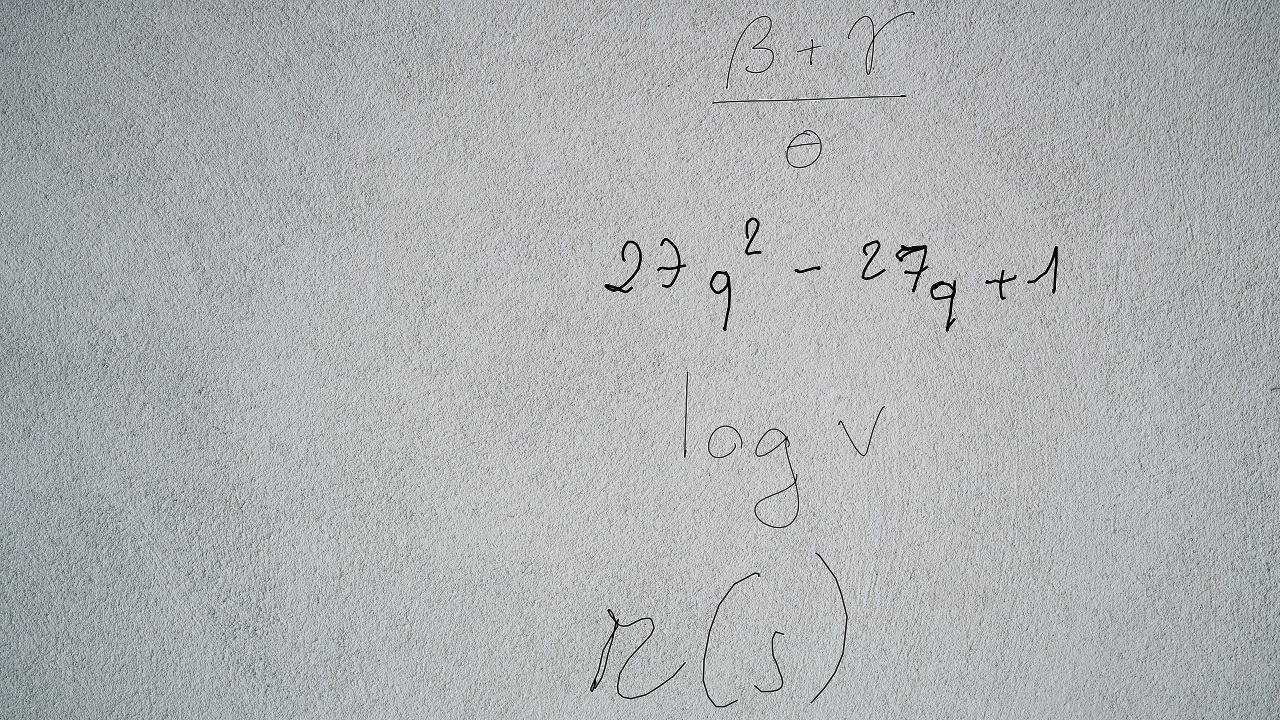 \frac{\beta + \gamma}{\theta}
27q^2 - 27q + 1
log v
r(s)